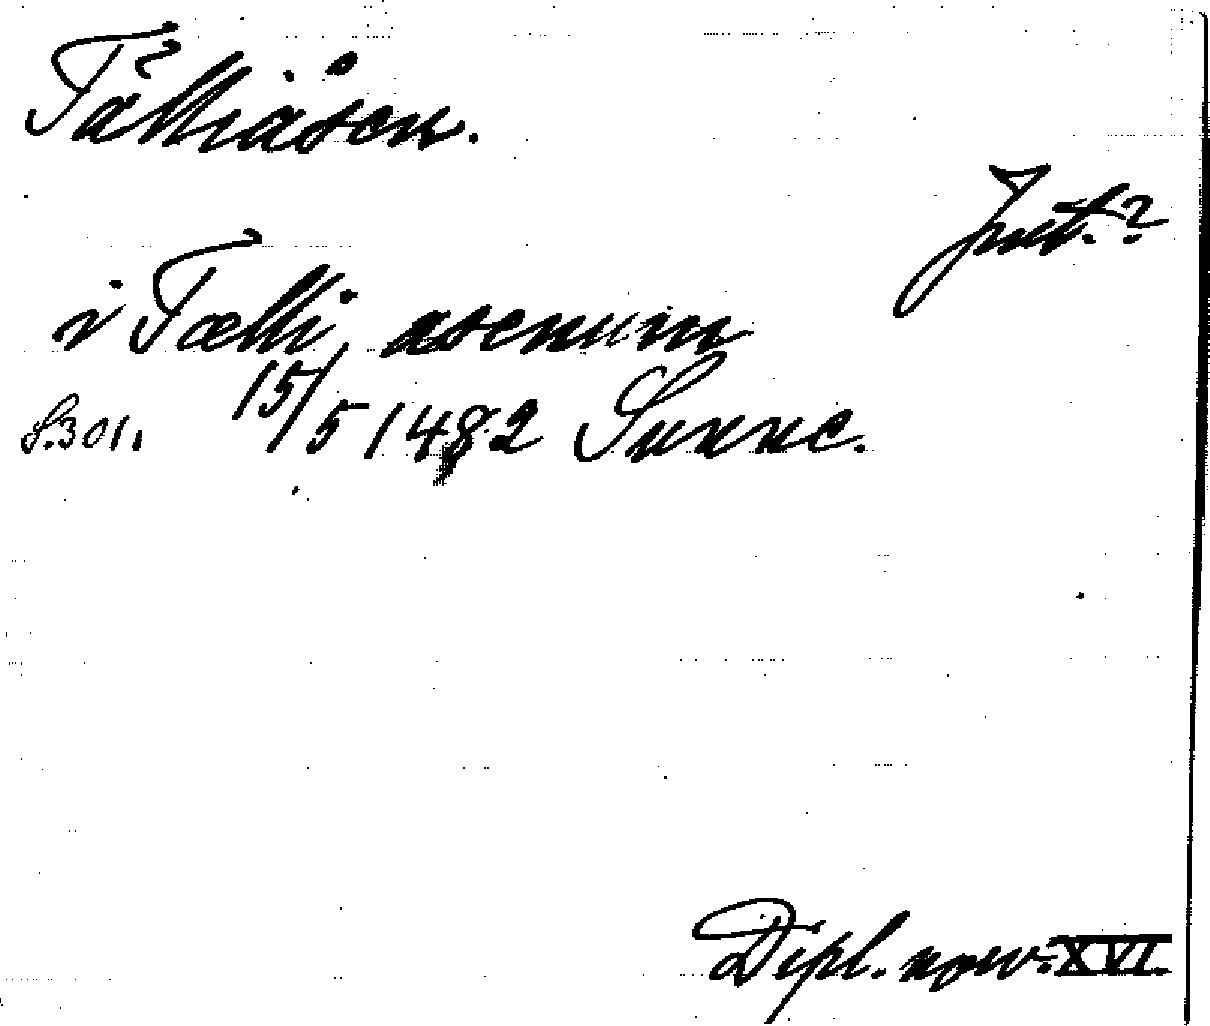 Tälliåsen.
Jmt.?
i Tælli asenum
S. 301. 15/5 1482 Sunne.
Dipl. norv. XVI.